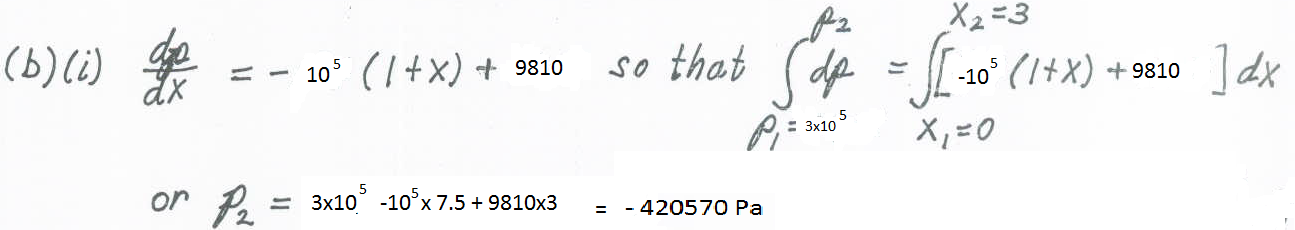 (b)(i) dp/dx = - 10⁵ (1+x) + 9810 so that ∫_{p₁ = 3x10⁵}^{p₂} dp = ∫_{x₁=0}^{x₂=3} [ -10⁵ (1+x) + 9810 ] dx
or p₂ = 3x10⁵ -10⁵x 7.5 + 9810x3 = - 420570 Pa